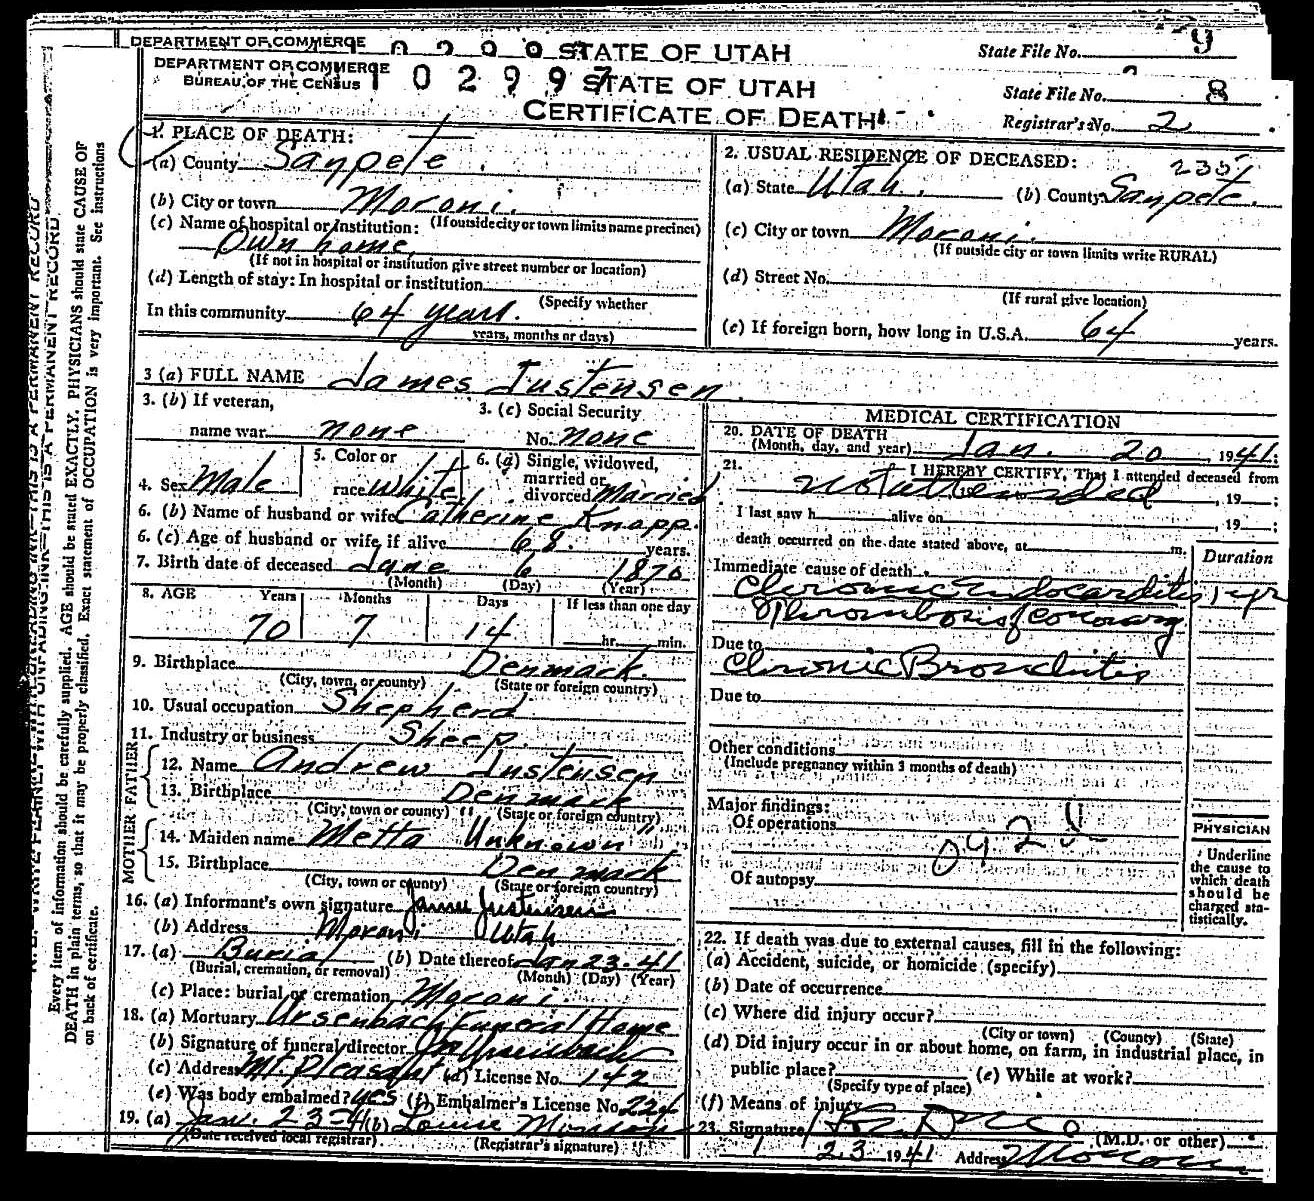 DEPARTMENT OF COMMERCE STATE OF UTAH State File No. 9
DEPARTMENT OF COMMERCE 102997 STATE OF UTAH State File No. 8
BUREAU OF THE CENSUS
CERTIFICATE OF DEATH Registrar's No. 2
1. PLACE OF DEATH:
(a) County Sanpete
(b) City or town Moroni.
(If outside city or town limits name precinct)
(c) Name of hospital or institution:
Own home
(If not in hospital or institution give street number or location)
(d) Length of stay: In hospital or institution
(Specify whether
In this community 64 years.
years, months or days)
2. USUAL RESIDENCE OF DECEASED: 235
(a) State Utah. (b) County Sanpete.
(c) City or town Moroni.
(If outside city or town limits write RURAL)
(d) Street No.
(If rural give location)
(e) If foreign born, how long in U.S.A. 64 years.
3 (a) FULL NAME James Justensen
3. (b) If veteran, name war none
3. (c) Social Security No. none
4. Sex Male
5. Color or race White
6. (a) Single, widowed, married or divorced Married
6. (b) Name of husband or wife Catherine Knapp.
6. (c) Age of husband or wife, if alive 68. years.
7. Birth date of deceased June 6 1870
(Month) (Day) (Year)
8. AGE Years Months Days If less than one day
70 7 14 hr. min.
9. Birthplace Denmark.
(City, town, or county) (State or foreign country)
10. Usual occupation Shepherd
11. Industry or business Sheep.
FATHER
12. Name Andrew Justensen
13. Birthplace Denmark
(City, town or county) (State or foreign country)
MOTHER
14. Maiden name Metta Unknown
15. Birthplace Denmark
(City, town or county) (State or foreign country)
16. (a) Informant's own signature James Justensen
(b) Address Moroni Utah
17. (a) Burial (b) Date thereof Jan 23. 41
(Burial, cremation, or removal) (Month) (Day) (Year)
(c) Place: burial or cremation Moroni.
18. (a) Mortuary Ursenbach Funeral Home
(b) Signature of funeral director Ursenbach
(c) Address Mt. Pleasant (d) License No. 142
(e) Was body embalmed? yes (f) Embalmer's License No. 224
19. (a) Jan. 23-41 (b) Louise
(Date received local registrar). (Registrar's signature)
MEDICAL CERTIFICATION
20. DATE OF DEATH
(Month, day, and year) Jan. 20 1941;
21. I HEREBY CERTIFY, That I attended deceased from
not attended, 19 ;
I last saw h alive on , 19 ;
death occurred on the date stated above, at m.
Duration
Immediate cause of death
Chronic Endocarditis 1 yr
Thrombosis of coronary
Due to
Chronic Bronchitis
Due to
Other conditions
(Include pregnancy within 3 months of death)
Major findings:
Of operations
092
Of autopsy
PHYSICIAN
Underline the cause to which death should be charged statistically.
22. If death was due to external causes, fill in the following:
(a) Accident, suicide, or homicide (specify)
(b) Date of occurrence
(c) Where did injury occur?
(City or town) (County) (State)
(d) Did injury occur in or about home, on farm, in industrial place, in
public place? (e) While at work?
(Specify type of place)
(f) Means of injury
23. Signature (M.D. or other)
1 23 1941 Address Moroni
N.B.—WRITE PLAINLY WITH UNFADING INK—THIS IS A PERMANENT RECORD
Every item of information should be carefully supplied. AGE should be stated EXACTLY. PHYSICIANS should state CAUSE OF
DEATH in plain terms, so that it may be properly classified. Exact statement of OCCUPATION is very important. See instructions
on back of certificate.